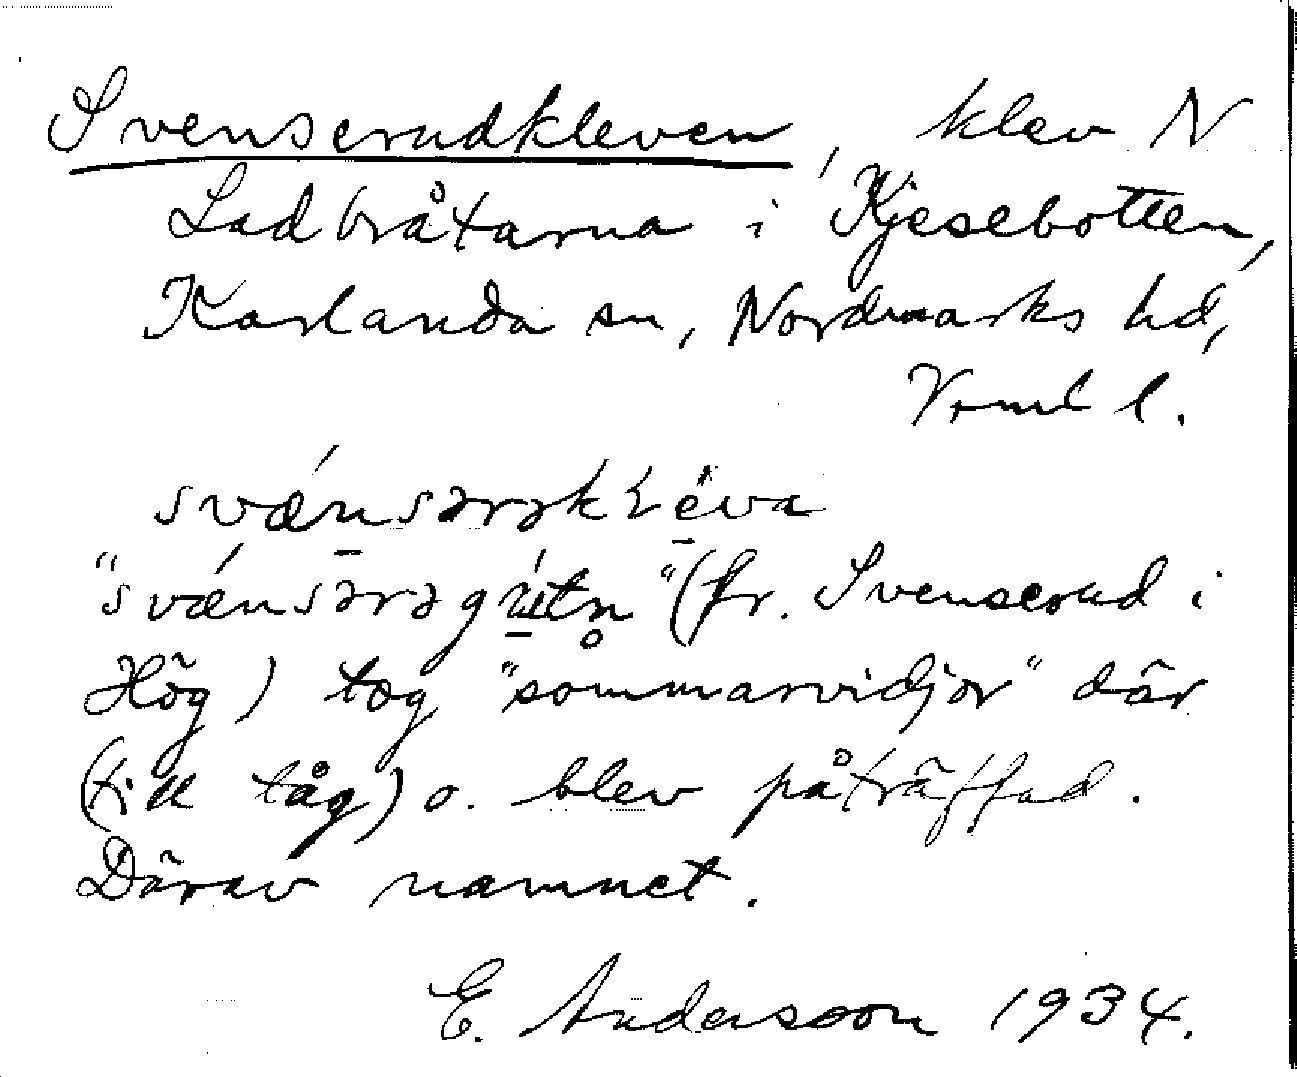 Svenserudkleven, klev N
Ladbråtarna i Kjesebotten,
Karlanda sn, Nordmarks hd,
Vrml l.
svǽnsərəkléva
"svǽnsərəgútn̥" (fr. Svenserud i
Hög) tog "sommarvidjor" där
(till tåg) o. blev påträffad.
Därav namnet.
E. Andersson 1934.